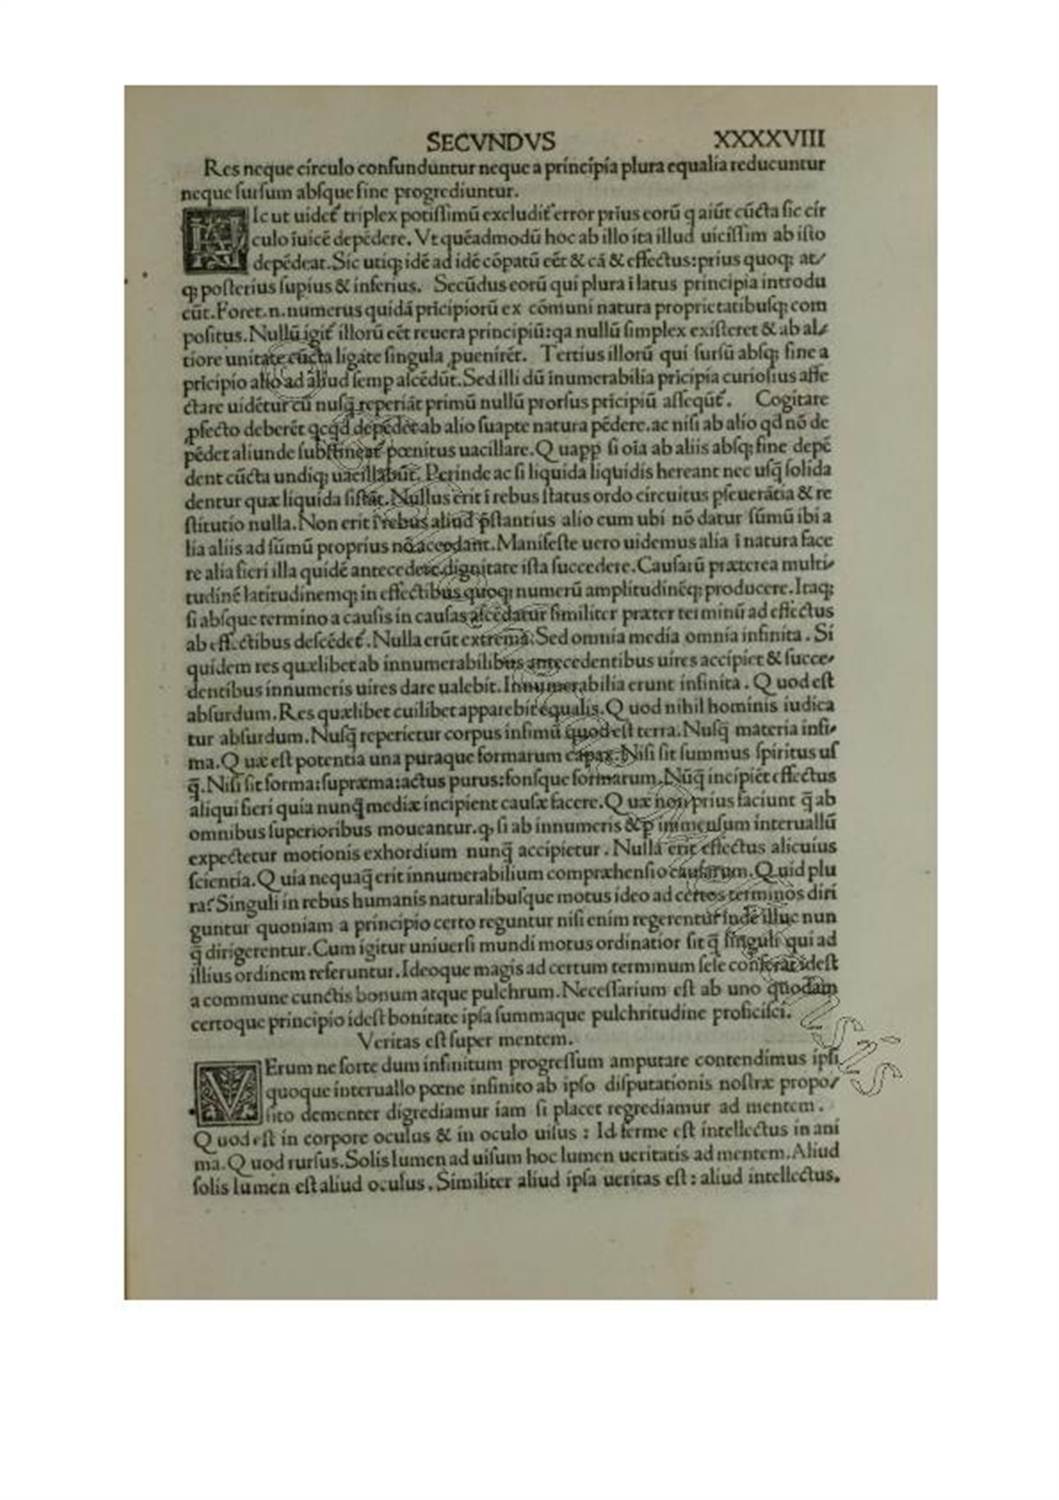 SECVNDVS XXXXVIII
Res neque circulo confunduntur neque a principia plura equalia reducuntur
neque ſurſum abſque fine progrediuntur.
HIc ut uidet᷑ triplex potiſſimū excludit᷑ error prius eorū q aiūt cūcta ſic cir
culo īuicē depēdere. Vt quēadmodū hoc ab illo ita illud uiciſſim ab iſto
depēdeat. Sic utiqꝫ idē ad idē cōpatū eēt & cā & effectus: prius quoqꝫ at/
qꝫ poſterius ſupius & inferius. Secūdus eorū qui plura ī latus principia introdu
cūt. Foret .n. numerus quidā pricipiorū ex cōmuni natura proprietatibuſqꝫ com
poſitus. Nullū igit᷑ illorū eēt reuera principiū: qa nullū ſimplex exiſteret & ab al/
tiore unitate cūcta ligāte ſingula ꝓuenirēt. Tertius illorū qui ſurſū abſqꝫ fine a
pricipio alio ad aliud ſemp aſcēdūt. Sed illi dū īnumerabilia pricipia curioſius affe
ctare uidētur cū nuſq̄ reperiāt primū nullū prorſus pricipiū aſſequūt᷑. Cogitare
ꝓfecto deberēt qcqd depēdet ab alio ſuapte natura pēdere. ac niſi ab alio qd nō de
pēdet aliunde ſubſtineat᷑ pœnitus uacillare. Quapp ſi oīa ab aliis abſqꝫ fine depē
dent cūcta undiqꝫ uacillabūt. Perinde ac ſi liquida liquidis hereant nec uſq̄ ſolida
dentur quæ liquida ſiſtāt. Nullus erit ī rebus ſtatus ordo circuitus pſeuerātia & re
ſtitutio nulla. Non erit ī rebus aliud p̄ſtantius alio cum ubi nō datur ſūmū ibi a
lia aliis ad ſūmū proprius nō accedant. Manifeſte uero uidemus alia ī natura face
re alia fieri illa quidē antecedere dignitate iſta ſuccedere. Cauſarū præterea multi/
tudinē latitudinemqꝫ in effectibus quoqꝫ numerū amplitudinēqꝫ producere. Itaqꝫ
ſi abſque termino a cauſis in cauſas aſcēdatur ſimiliter præter terminū ad effectus
ab effectibus deſcēdet᷑. Nulla erūt extrema. Sed omnia media omnia infinita. Si
quidem res quælibet ab innumerabilibus antecedentibus uires accipiet & ſucce/
dentibus innumeris uires dare ualebit. Innumerabilia erunt infinita. Quod eſt
abſurdum. Res quælibet cuilibet apparebit equalis. Quod nihil hominis iudica
tur abſurdum. Nuſq̄ reperietur corpus infimū quod eſt terra. Nuſq̄ materia infi/
ma. Quæ eſt potentia una puraque formarum capax. Niſi ſit ſummus ſpiritus uſ
q̄. Niſi ſit forma: ſupræma: actus purus: fonſque formarum. Nūq̄ incipiēt effectus
aliqui fieri quia nunq̄ mediæ incipient cauſæ facere. Quæ non prius faciunt q̄ ab
omnibus ſuperioribus moueantur. qꝫ ſi ab innumeris & p immenſum interuallū
expectetur motionis exhordium nunq̄ accipietur. Nulla erit effectus alicuius
ſcientia. Quia nequaq̄ erit innumerabilium compræhenſio cauſarum. Quid plu
ra? Singuli in rebus humanis naturalibuſque motus ideo ad certos terminos diri
guntur quoniam a principio certo reguntur niſi enim regerentur inde illuc nun
q̄ dirigerentur. Cum igitur uniuerſi mundi motus ordinatior ſit q̄ ſinguli qui ad
illius ordinem referuntur. Ideoque magis ad certum terminum ſeſe conferat ideſt
a commune cunctis bonum atque pulchrum. Neceſſarium eſt ab uno quodam
certoque principio ideſt bonitate ipſa ſummaque pulchritudine proficiſci.
Veritas eſt ſuper mentem.
VErum ne forte dum infinitum progreſſum amputare contendimus ipſi
quoque interuallo pœne infinito ab ipſo diſputationis noſtræ propo/
ſito dementer digrediamur iam ſi placet regrediamur ad mentem.
Quod eſt in corpore oculus & in oculo uiſus: Id ferme eſt intellectus in ani
ma. Quod rurſus. Solis lumen ad uiſum hoc lumen ueritatis ad mentem. Aliud
ſolis lumen eſt aliud oculus. Similiter aliud ipſa ueritas eſt: aliud intellectus.